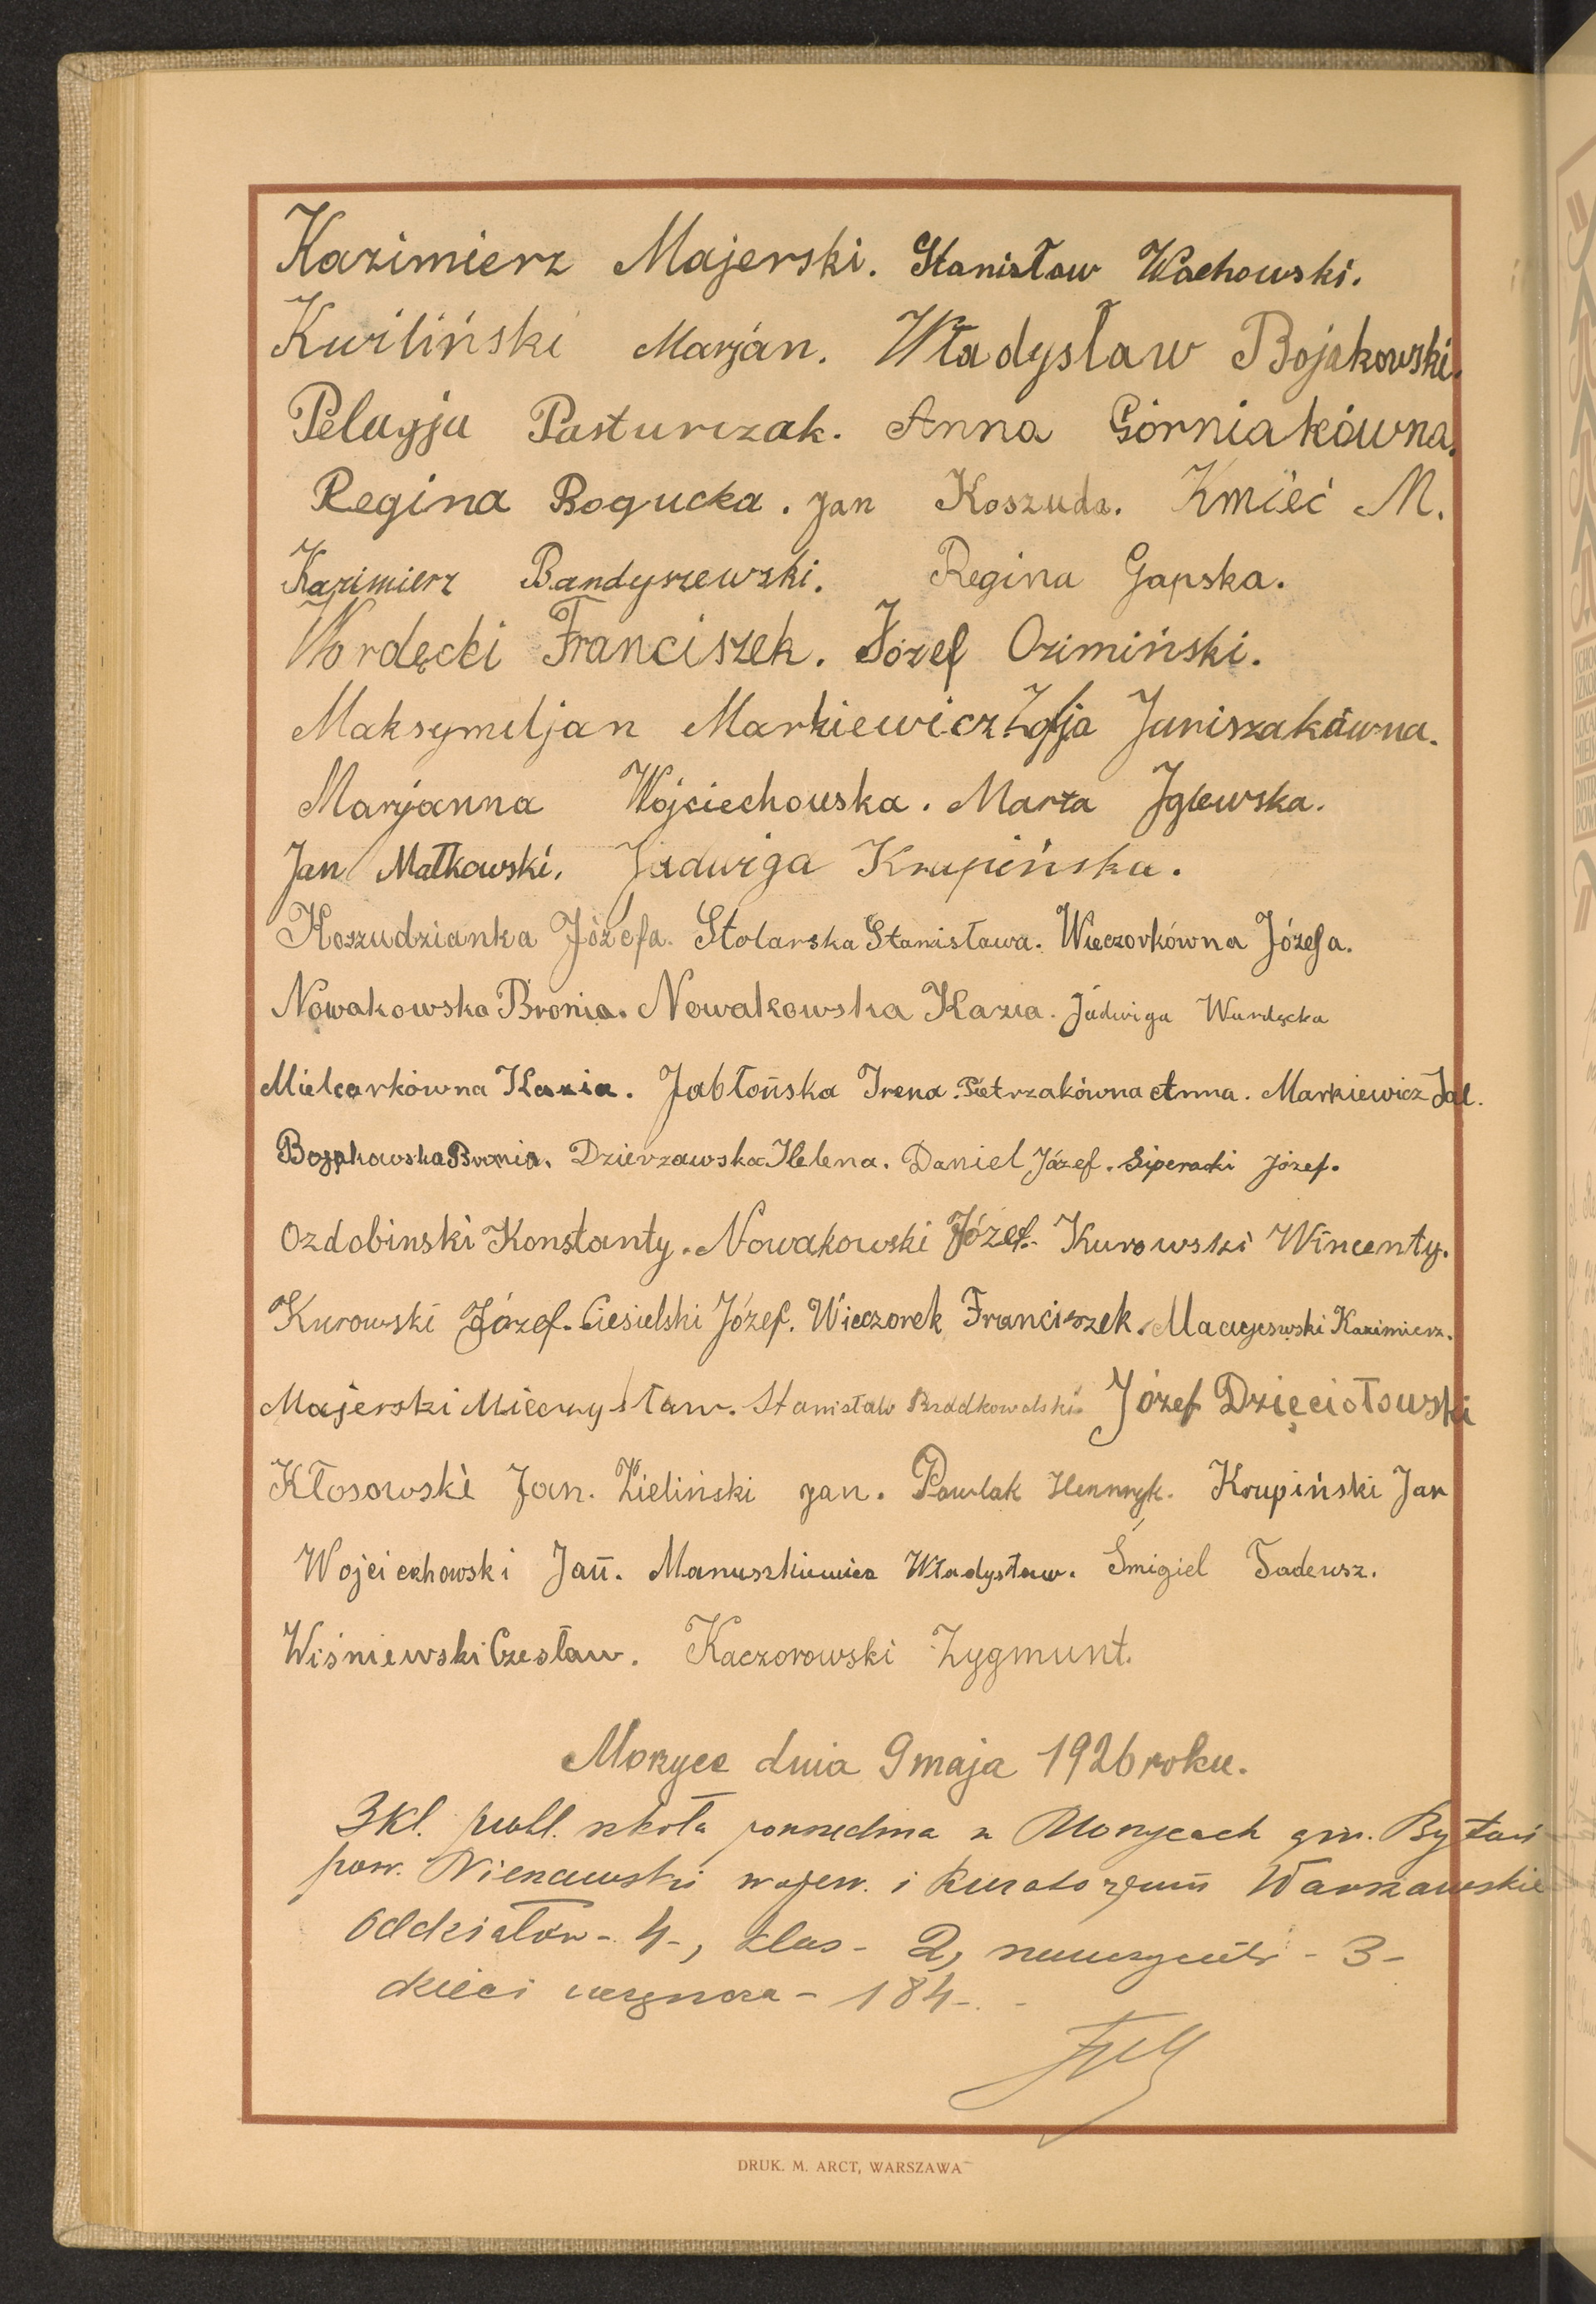 Kazimierz Majerski. Stanisław Wachowski.
Kwiliński Marjan. Władysław Bojakowski.
Pelagja Pasturczak. Anna Górniakówna.
Regina Bogucka. Jan Koszuda. Kmieć M.
Kazimierz Bandyszewski. Regina Gapska.
Wordęcki Franciszek. Józef Ozimiński.
Maksymiljan Markiewicz Zofja Juriszakówna.
Marjanna Wojciechowska. Marta Iglewska.
Jan Małkowski. Jadwiga Krupińska.
Koszudzianka Józefa. Stolarska Stanisława. Wieczorkówna Józefa.
Nowakowska Bronia. Nowakowska Kazia. Jadwiga Wurdęcka
Mielcarkówna Kazia. Jabłońska Irena. Pietrzakówna Anna. Markiewicz Jal.
Bojakowska Bronia. Dzierzawska Helena. Daniel Józef. Siperacki Józef.
Ozdobinski Konstanty. Nowakowski Józef. Kurowski Wincenty.
Kurowski Józef. Ciesielski Józef. Wieczorek Franciszek. Maciejewski Kazimierz.
Majerski Mieczysław. Stanisław Józef Dzięciołowski
Kłosowski Jan. Zieliński Jan. Pawlak Hennryk. Krupiński Jan
Wojciechowski Jan. Manuszkiewicz Władysław. Śmigiel Tadeusz.
Wiśniewski Czesław. Kaczorowski Zygmunt.
Morzyce dnia 9 maja 1926 roku.
3 kl. publ. szkoła powszechna w Morzycach gm. Bytoń
pow. Nieszawski wojew. i Kuratorjum Warszawskie
Oddziałów - 4 -, klas - 2, nauczycieli - 3 -
dzieci uczęszcza - 184 -.
DRUK. M. ARCT, WARSZAWA